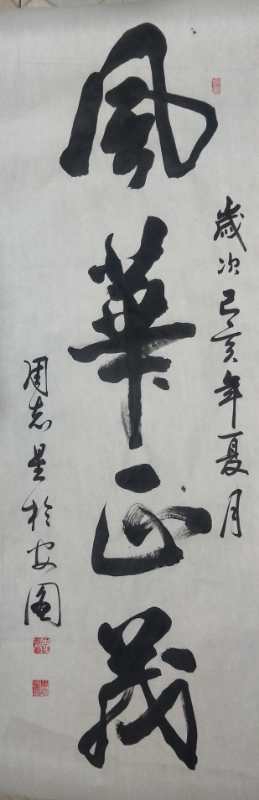 歲次己亥年夏月
風華正茂
周志星於安图